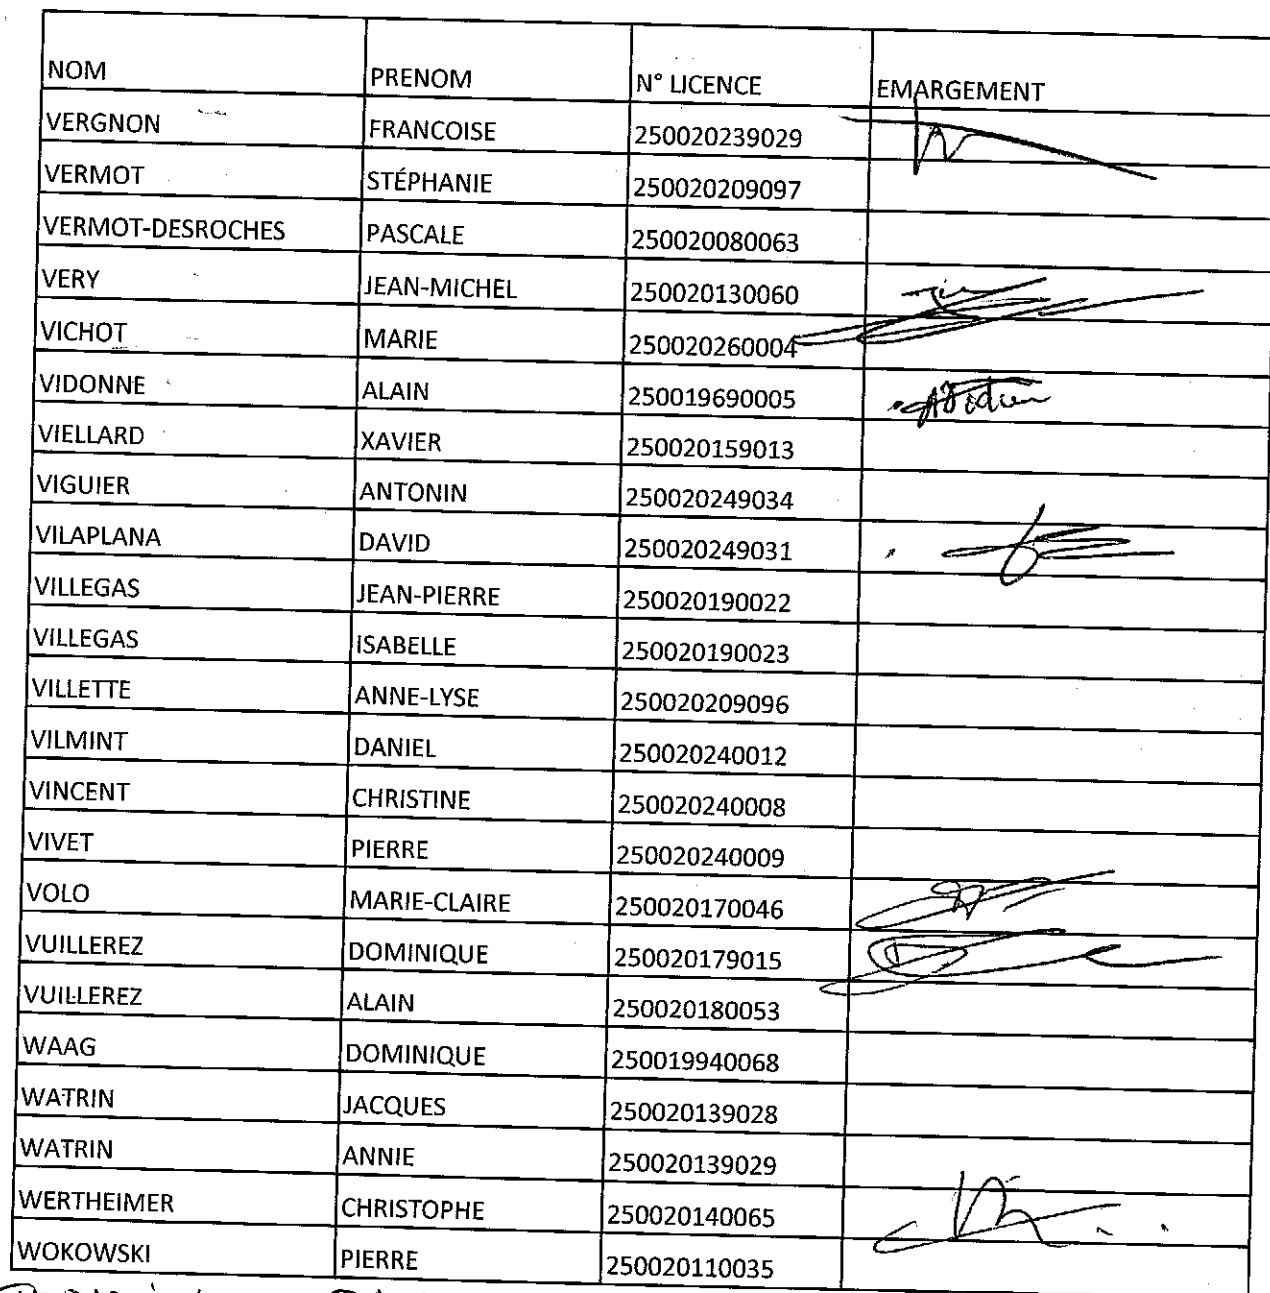 NOM PRENOM N° LICENCE EMARGEMENT
VERGNON FRANCOISE 250020239029
VERMOT STÉPHANIE 250020209097
VERMOT-DESROCHES PASCALE 250020080063
VERY JEAN-MICHEL 250020130060
VICHOT MARIE 250020260004
VIDONNE ALAIN 250019690005
VIELLARD XAVIER 250020159013
VIGUIER ANTONIN 250020249034
VILAPLANA DAVID 250020249031
VILLEGAS JEAN-PIERRE 250020190022
VILLEGAS ISABELLE 250020190023
VILLETTE ANNE-LYSE 250020209096
VILMINT DANIEL 250020240012
VINCENT CHRISTINE 250020240008
VIVET PIERRE 250020240009
VOLO MARIE-CLAIRE 250020170046
VUILLEREZ DOMINIQUE 250020179015
VUILLEREZ ALAIN 250020180053
WAAG DOMINIQUE 250019940068
WATRIN JACQUES 250020139028
WATRIN ANNIE 250020139029
WERTHEIMER CHRISTOPHE 250020140065
WOKOWSKI PIERRE 250020110035